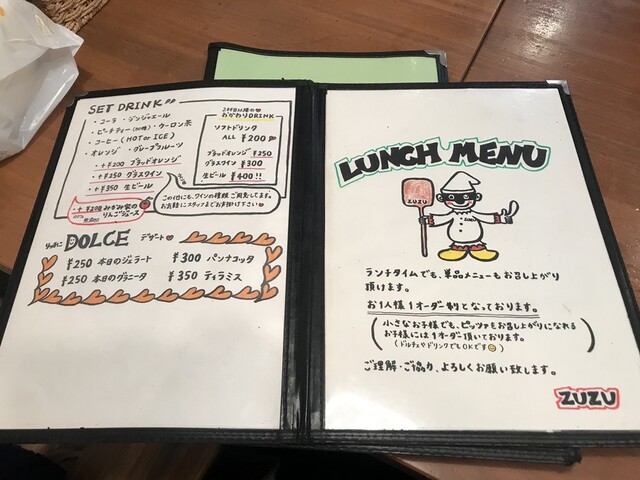 SET DRINK
・コーラ・ジンジャエール
・ピーチティー(加糖)・ウーロン茶
・コーヒー(HOT or ICE)
・オレンジ・グレープフルーツ
・+¥200 ブラッドオレンジ
・+¥250 グラスワイン
・+¥350 生ビール
・+¥200
りんごジュース
2杯目以降の
おかわりDRINK
ソフトドリンク
ALL ¥200
ブラッドオレンジ ¥250
グラスワイン ¥300
生ビール ¥400!!
この他にも、ワインの種類ご用意してます。
お気軽にスタッフまでお声掛け下さい
DOLCE デザート
¥250 本日のジェラート
¥300 パンナコッタ
¥250 本日のグラニータ
¥350 ティラミス
LUNCH MENU
ZUZU
ランチタイムでも、単品メニューもお召し上がり
頂けます。
お1人様1オーダー制となっております。
(小さなお子様でも、ピッツァをお召し上がりになれる
お子様には1オーダー頂いております。
(ドルチェやドリンクでもOKです))
ご理解・ご協力、よろしくお願い致します。
ZUZU